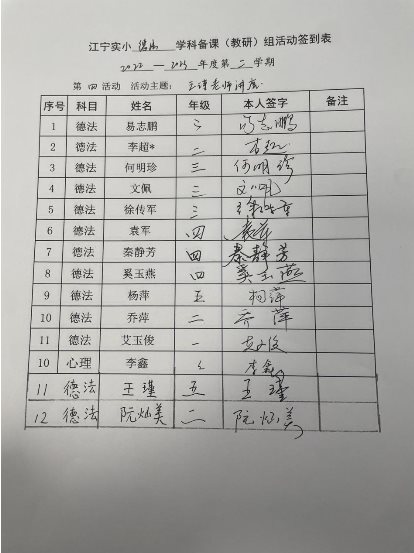 江宁实小 德法 学科备课（教研）组活动签到表
2022 — 2023 年度第 二 学期
第 四 活动 活动主题： 王瑾老师讲座
序号 科目 姓名 年级 本人签字 备注
1 德法 易志鹏 二 易志鹏
2 德法 李超* 二
3 德法 何明珍 三 何明珍
4 德法 文佩 三 文佩
5 德法 徐传军 三 徐传军
6 德法 袁军 四 袁军
7 德法 秦静芳 四 秦静芳
8 德法 奚玉燕 四 奚玉燕
9 德法 杨萍 五 杨萍
10 德法 乔萍 二 乔萍
11 德法 艾玉俊 一 艾玉俊
10 心理 李鑫 李鑫
11 德法 王瑾 五 王瑾
12 德法 阮灿美 二 阮灿美